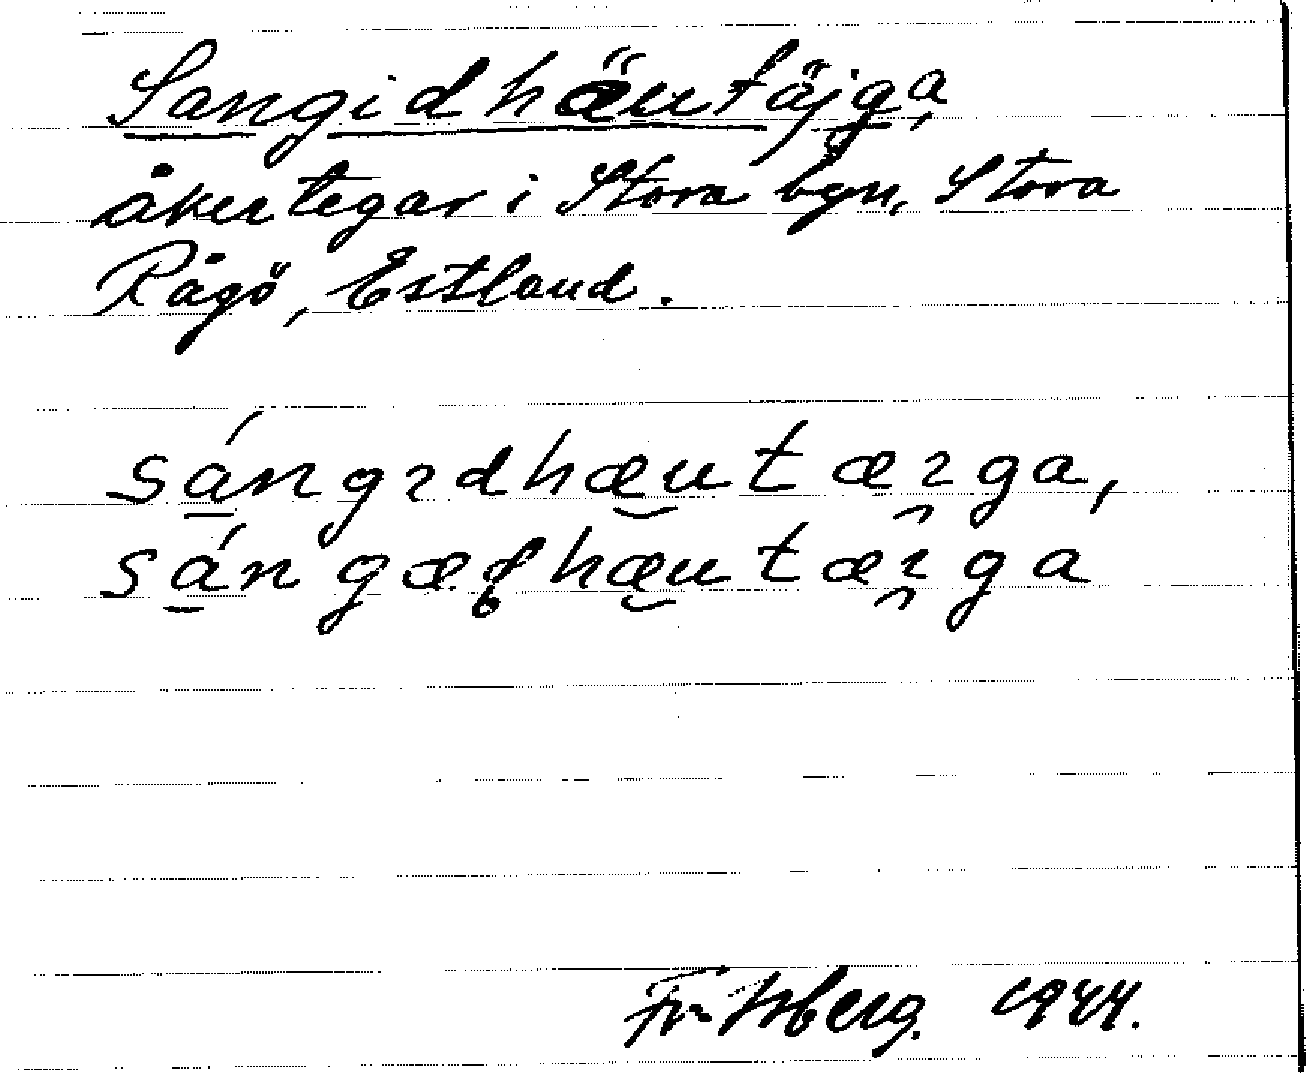 Sangidhäutäjga,
åkertegar i Stora byn, Stora
Rågö, Estland.
sángıdhæutæıga,
sángæđhæutæıga
Fritsberg. 1944.